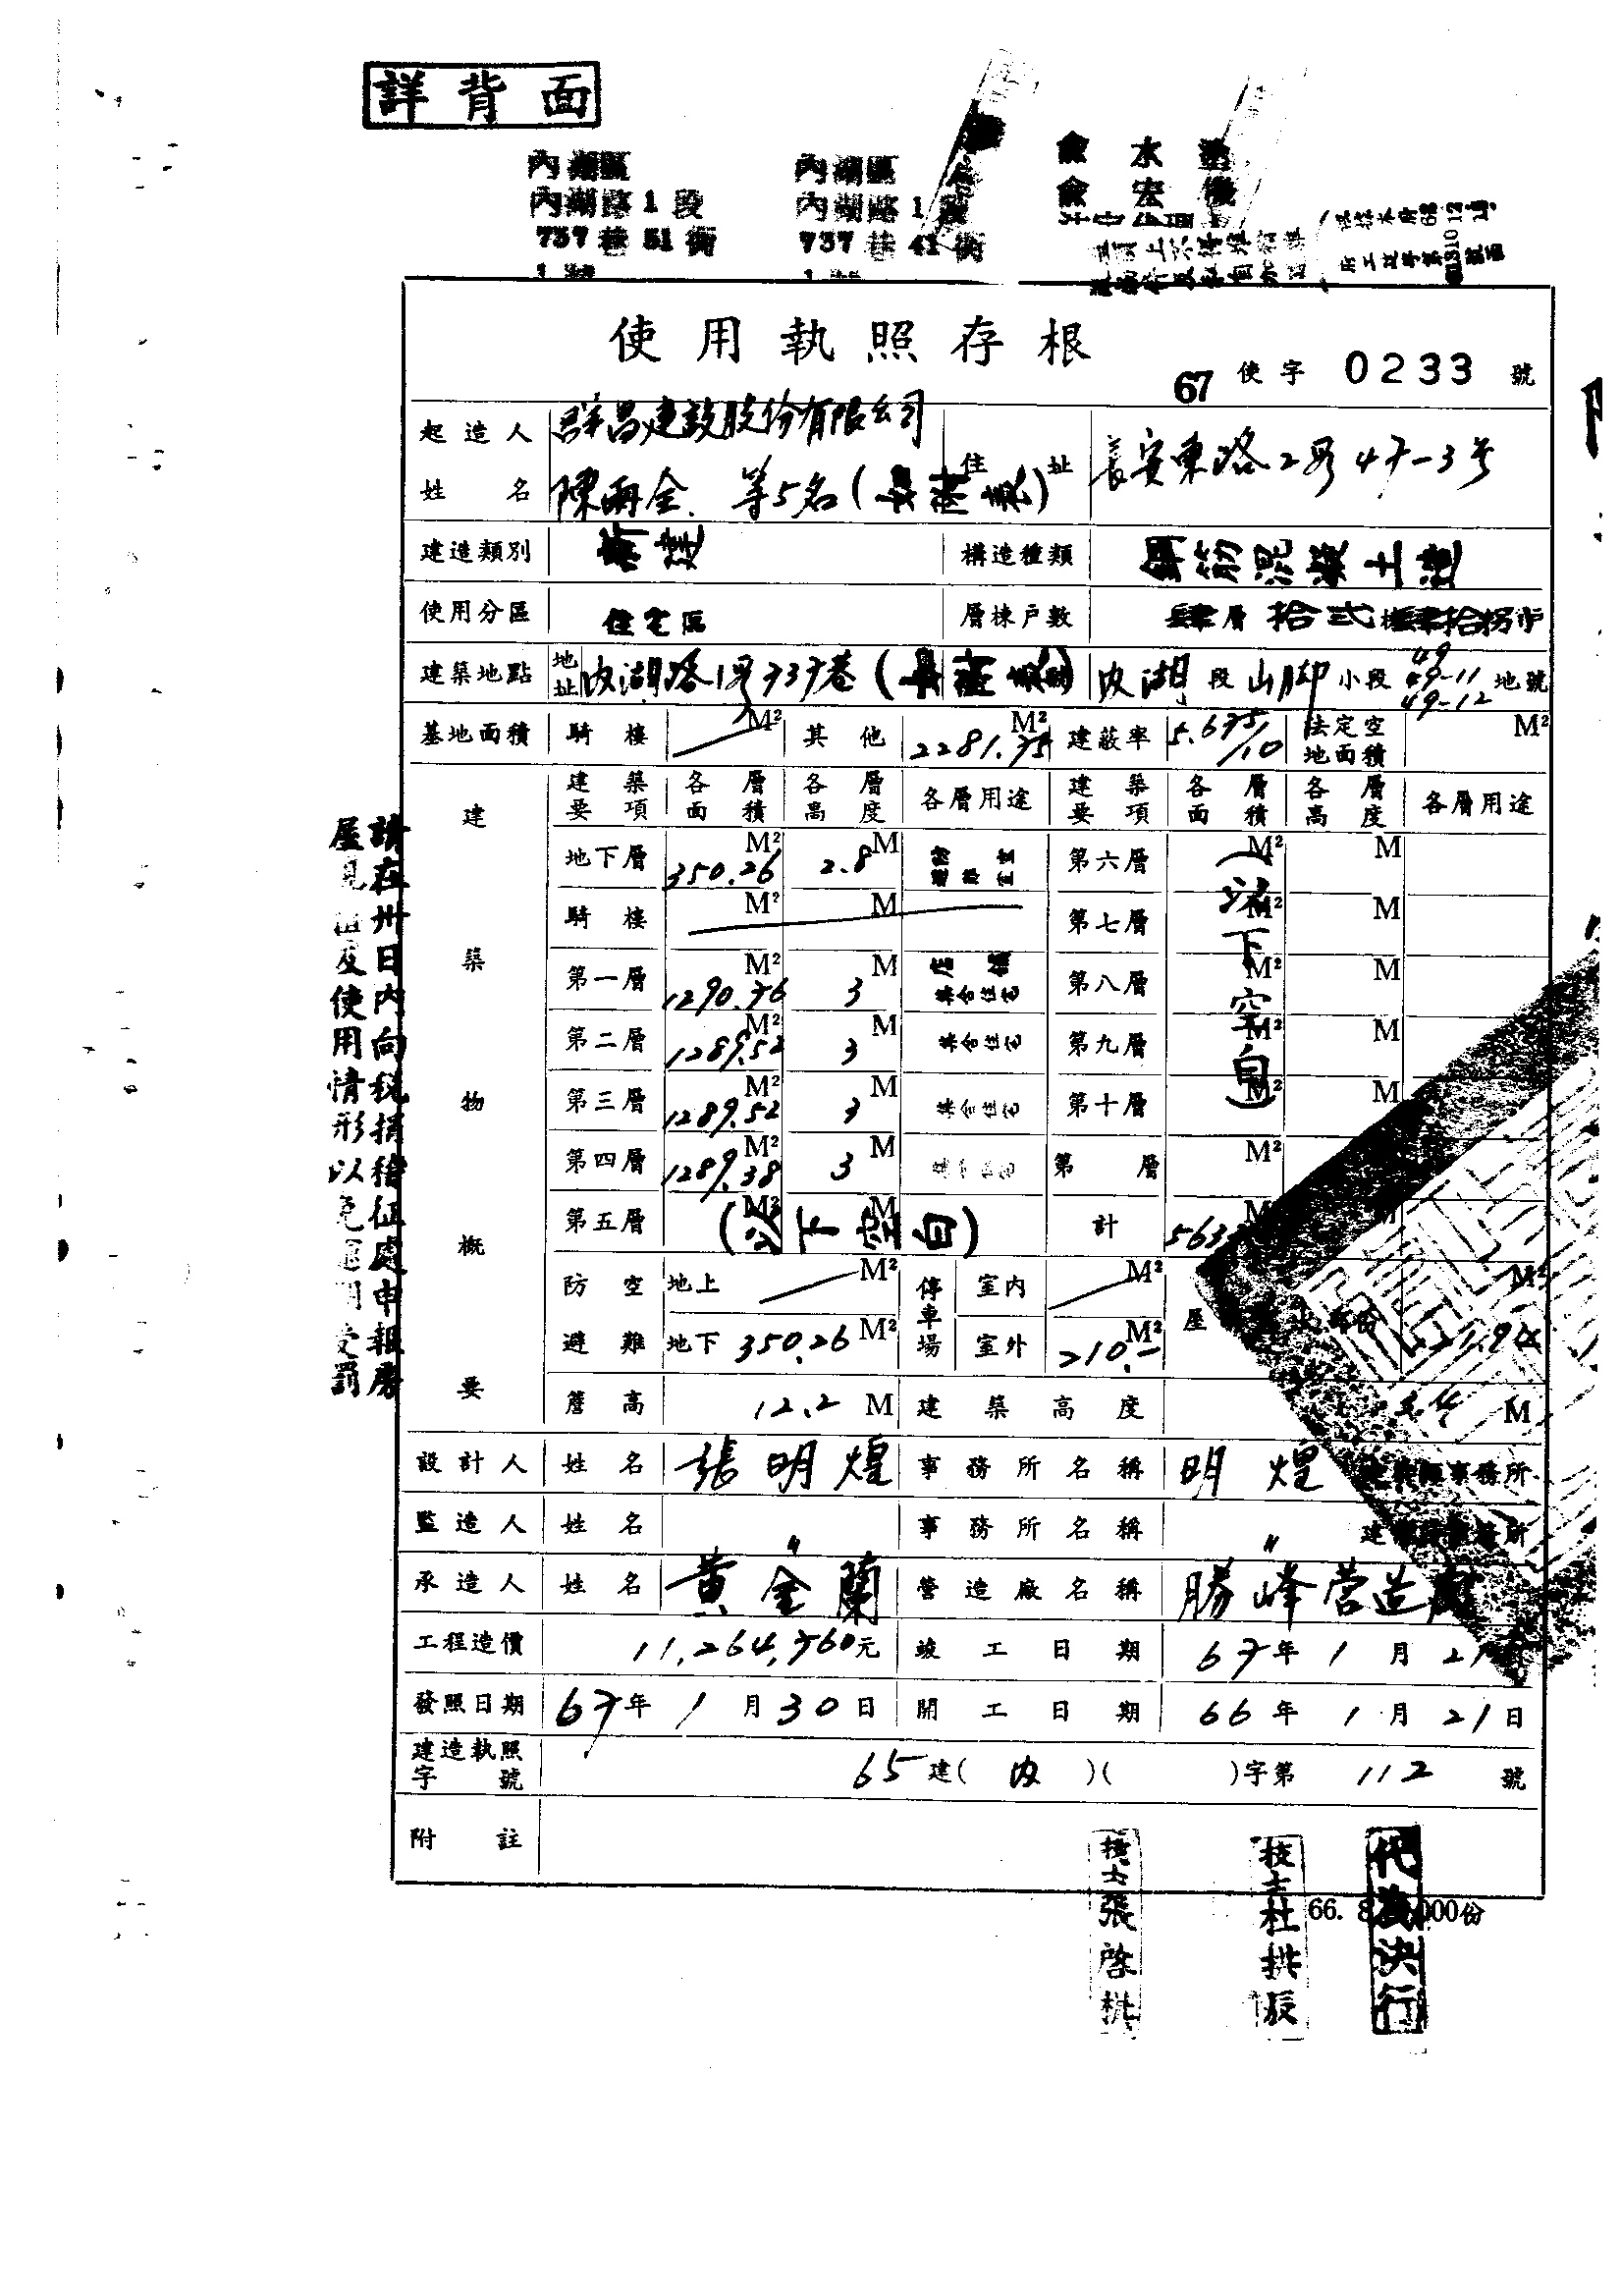 詳背面
內湖區
內湖路1段
737巷51衖
1號
內湖區
內湖路1段
737巷41衖
1號
俞水
俞宏
使用執照存根
67使字0233號
起造人姓名
群昌建設股份有限公司
陳兩全.等5名
住址
長安東路2段47-3号
建造類別
構造種類
鋼筋混凝土造
使用分區
住宅區
層棟戶數
肆層拾弍棟肆拾捌戶
建築地點
地址
內湖路1段737巷
內湖段山脚小段49 49-11 49-12地號
基地面積
騎樓 M²
其他 2281.75 M²
建蔽率 5.675/10
法定空地面積 M²
建築物概要
建築要項 各層面積 各層高度 各層用途 建築要項 各層面積 各層高度 各層用途
地下層 350.26 M² 2.8 M 第六層 M² M
騎樓 M² M 第七層 M² M
第一層 1290.76 M² 3 M 店舖 集合住宅 第八層 M² M
第二層 1289.52 M² 3 M 集合住宅 第九層 M² M
第三層 1289.52 M² 3 M 集合住宅 第十層 M² M
第四層 1289.38 M² 3 M 集合住宅 第 層 M²
第五層 M² M (以下空白) 計
(以下空白)
防空避難
地上 M²
地下 350.26 M²
停車場
室內 M²
室外 210.- M²
簷高 12.2 M
建築高度 M
設計人 姓名 張明煌 事務所名稱 明煌
監造人 姓名 〃 事務所名稱 〃
承造人 姓名 黃金蘭 營造廠名稱 勝峰营造廠
工程造價 11,264,760元 竣工日期 67年1月21日
發照日期 67年1月30日 開工日期 66年1月21日
建造執照字號 65建(內)( )字第112號
附註
請在卅日內向稅捐稽征處申報房
屋現值及使用情形以免逾期受罰
技士張啓桃
技士杜拱辰
代為決行